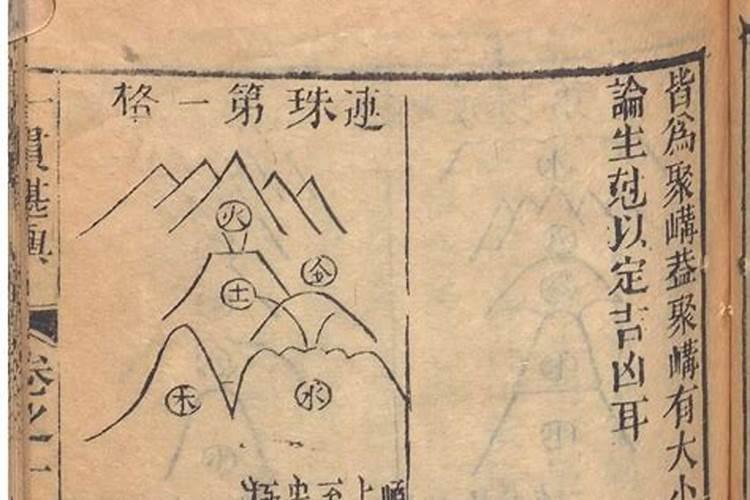 皆為聚講葢聚講有大小
論生尅以定吉凶耳
連珠第一格
火
金
土
木
水
一貫堪輿
卷之一